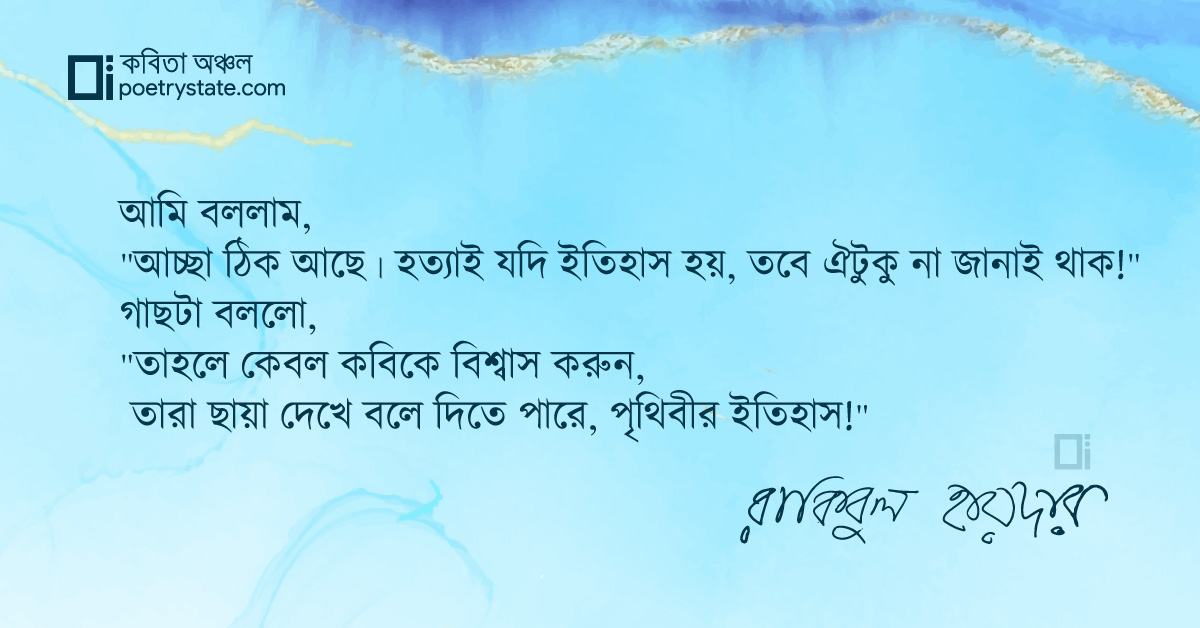 কবিতা অঞ্চল
poetrystate.com
আমি বললাম,
"আচ্ছা ঠিক আছে। হত্যাই যদি ইতিহাস হয়, তবে ঐটুকু না জানাই থাক!"
গাছটা বললো,
"তাহলে কেবল কবিকে বিশ্বাস করুন,
তারা ছায়া দেখে বলে দিতে পারে, পৃথিবীর ইতিহাস!"
রাকিবুল হায়দার